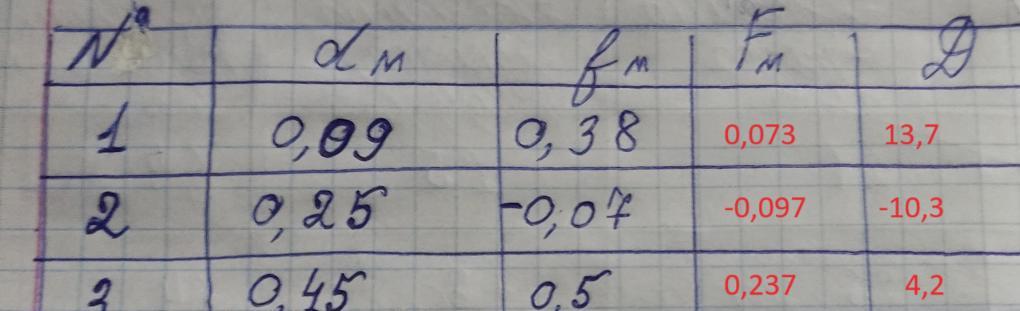 № d м f м F м D
1 0,09 0,38 0,073 13,7
2 0,25 -0,07 -0,097 -10,3
3 0,45 0,5 0,237 4,2